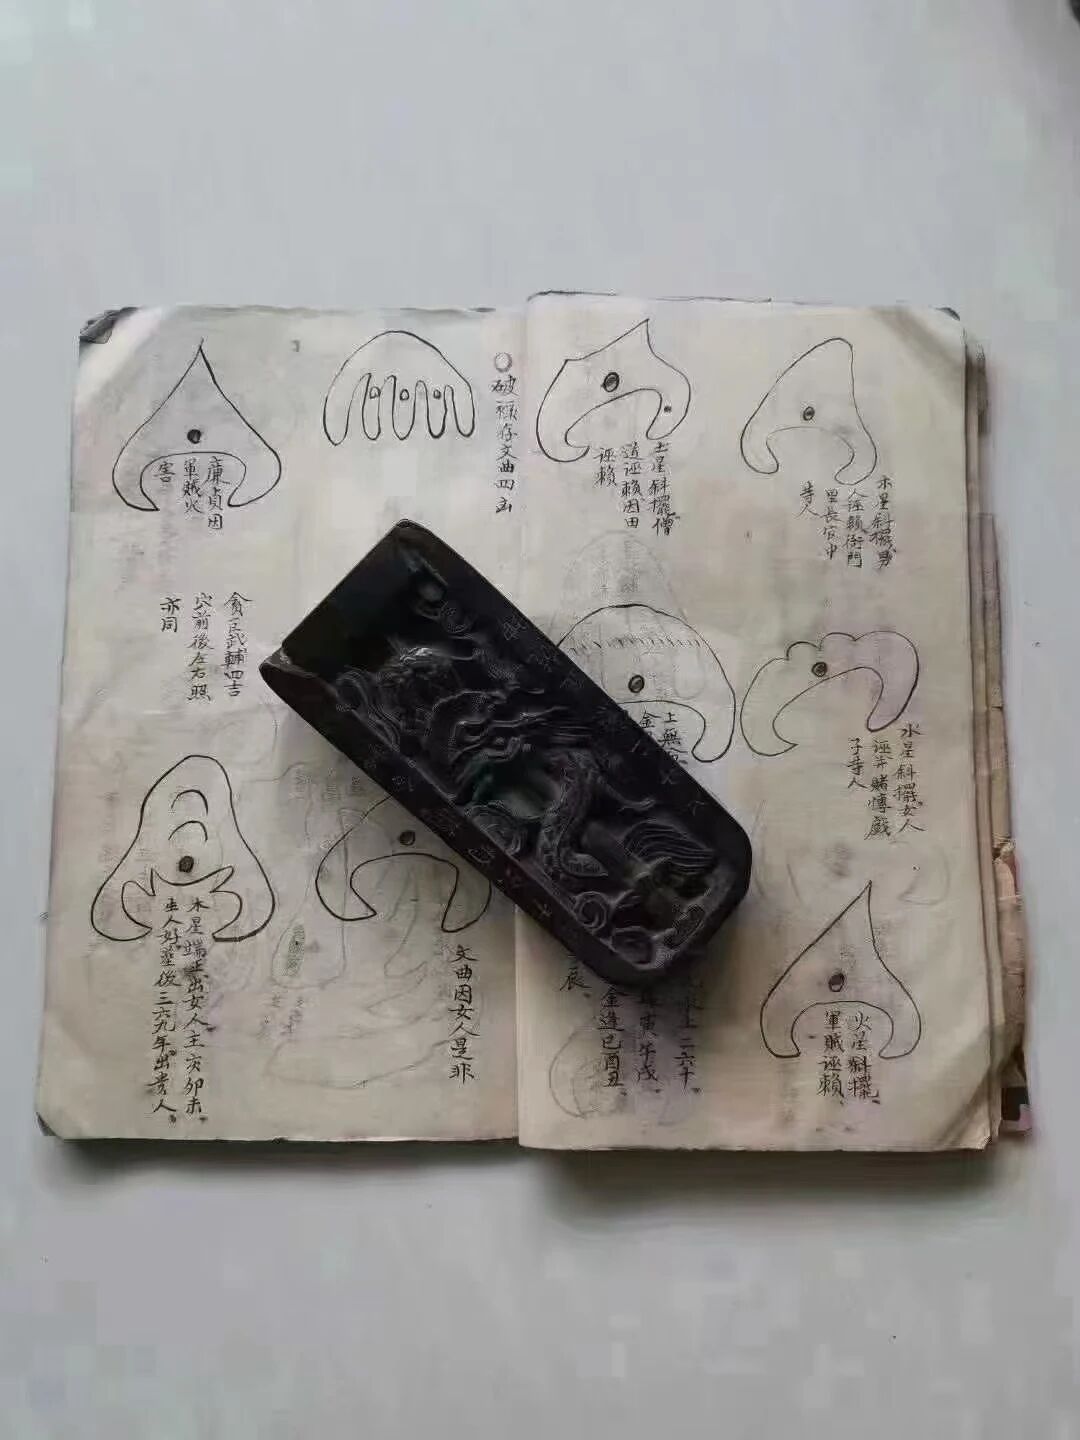 木星斜擺男
人誣賴衙門
里長官中
等人
土星斜擺僧
道誣賴因田
誣賴
水星斜擺女人
誣弄賭博戲
子等人
上無
金
火星斜擺
軍賊誣賴
上二六十
寅午戌
金造巳酉丑
辰
破祿存文曲四凶
廉貞因
軍賊火
害
貪巨武輔四吉
穴前後左右照
亦同
文曲因女人是非
木星端正出女人主亥卯未
生人好葬後三六九年出貴人